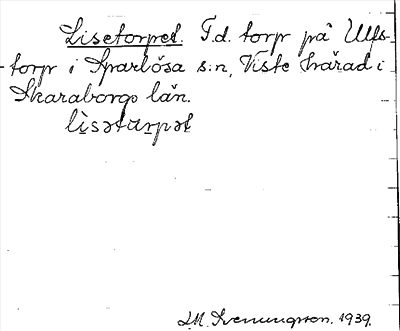 Lisetorpet. F.d. torp på Ulfs-
torp i Sparlösa s:n, Viste härad i
Skaraborgs län.
lìsətɯrpət
J.M. Svenungsson. 1939.